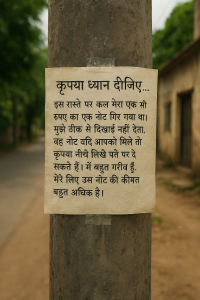 कृपया ध्यान दीजिए...
इस रास्ते पर कल मेरा एक सौ
रुपए का एक नोट गिर गया था।
मुझे ठीक से दिखाई नहीं देता.
वह नोट यदि आपको मिले तो
कृपया नीचे लिखे पते पर दे
सकते हैं। में बहुत गरीब हूँ.
मेरे लिए उस नोट की कीमत
बहुत अधिक है।